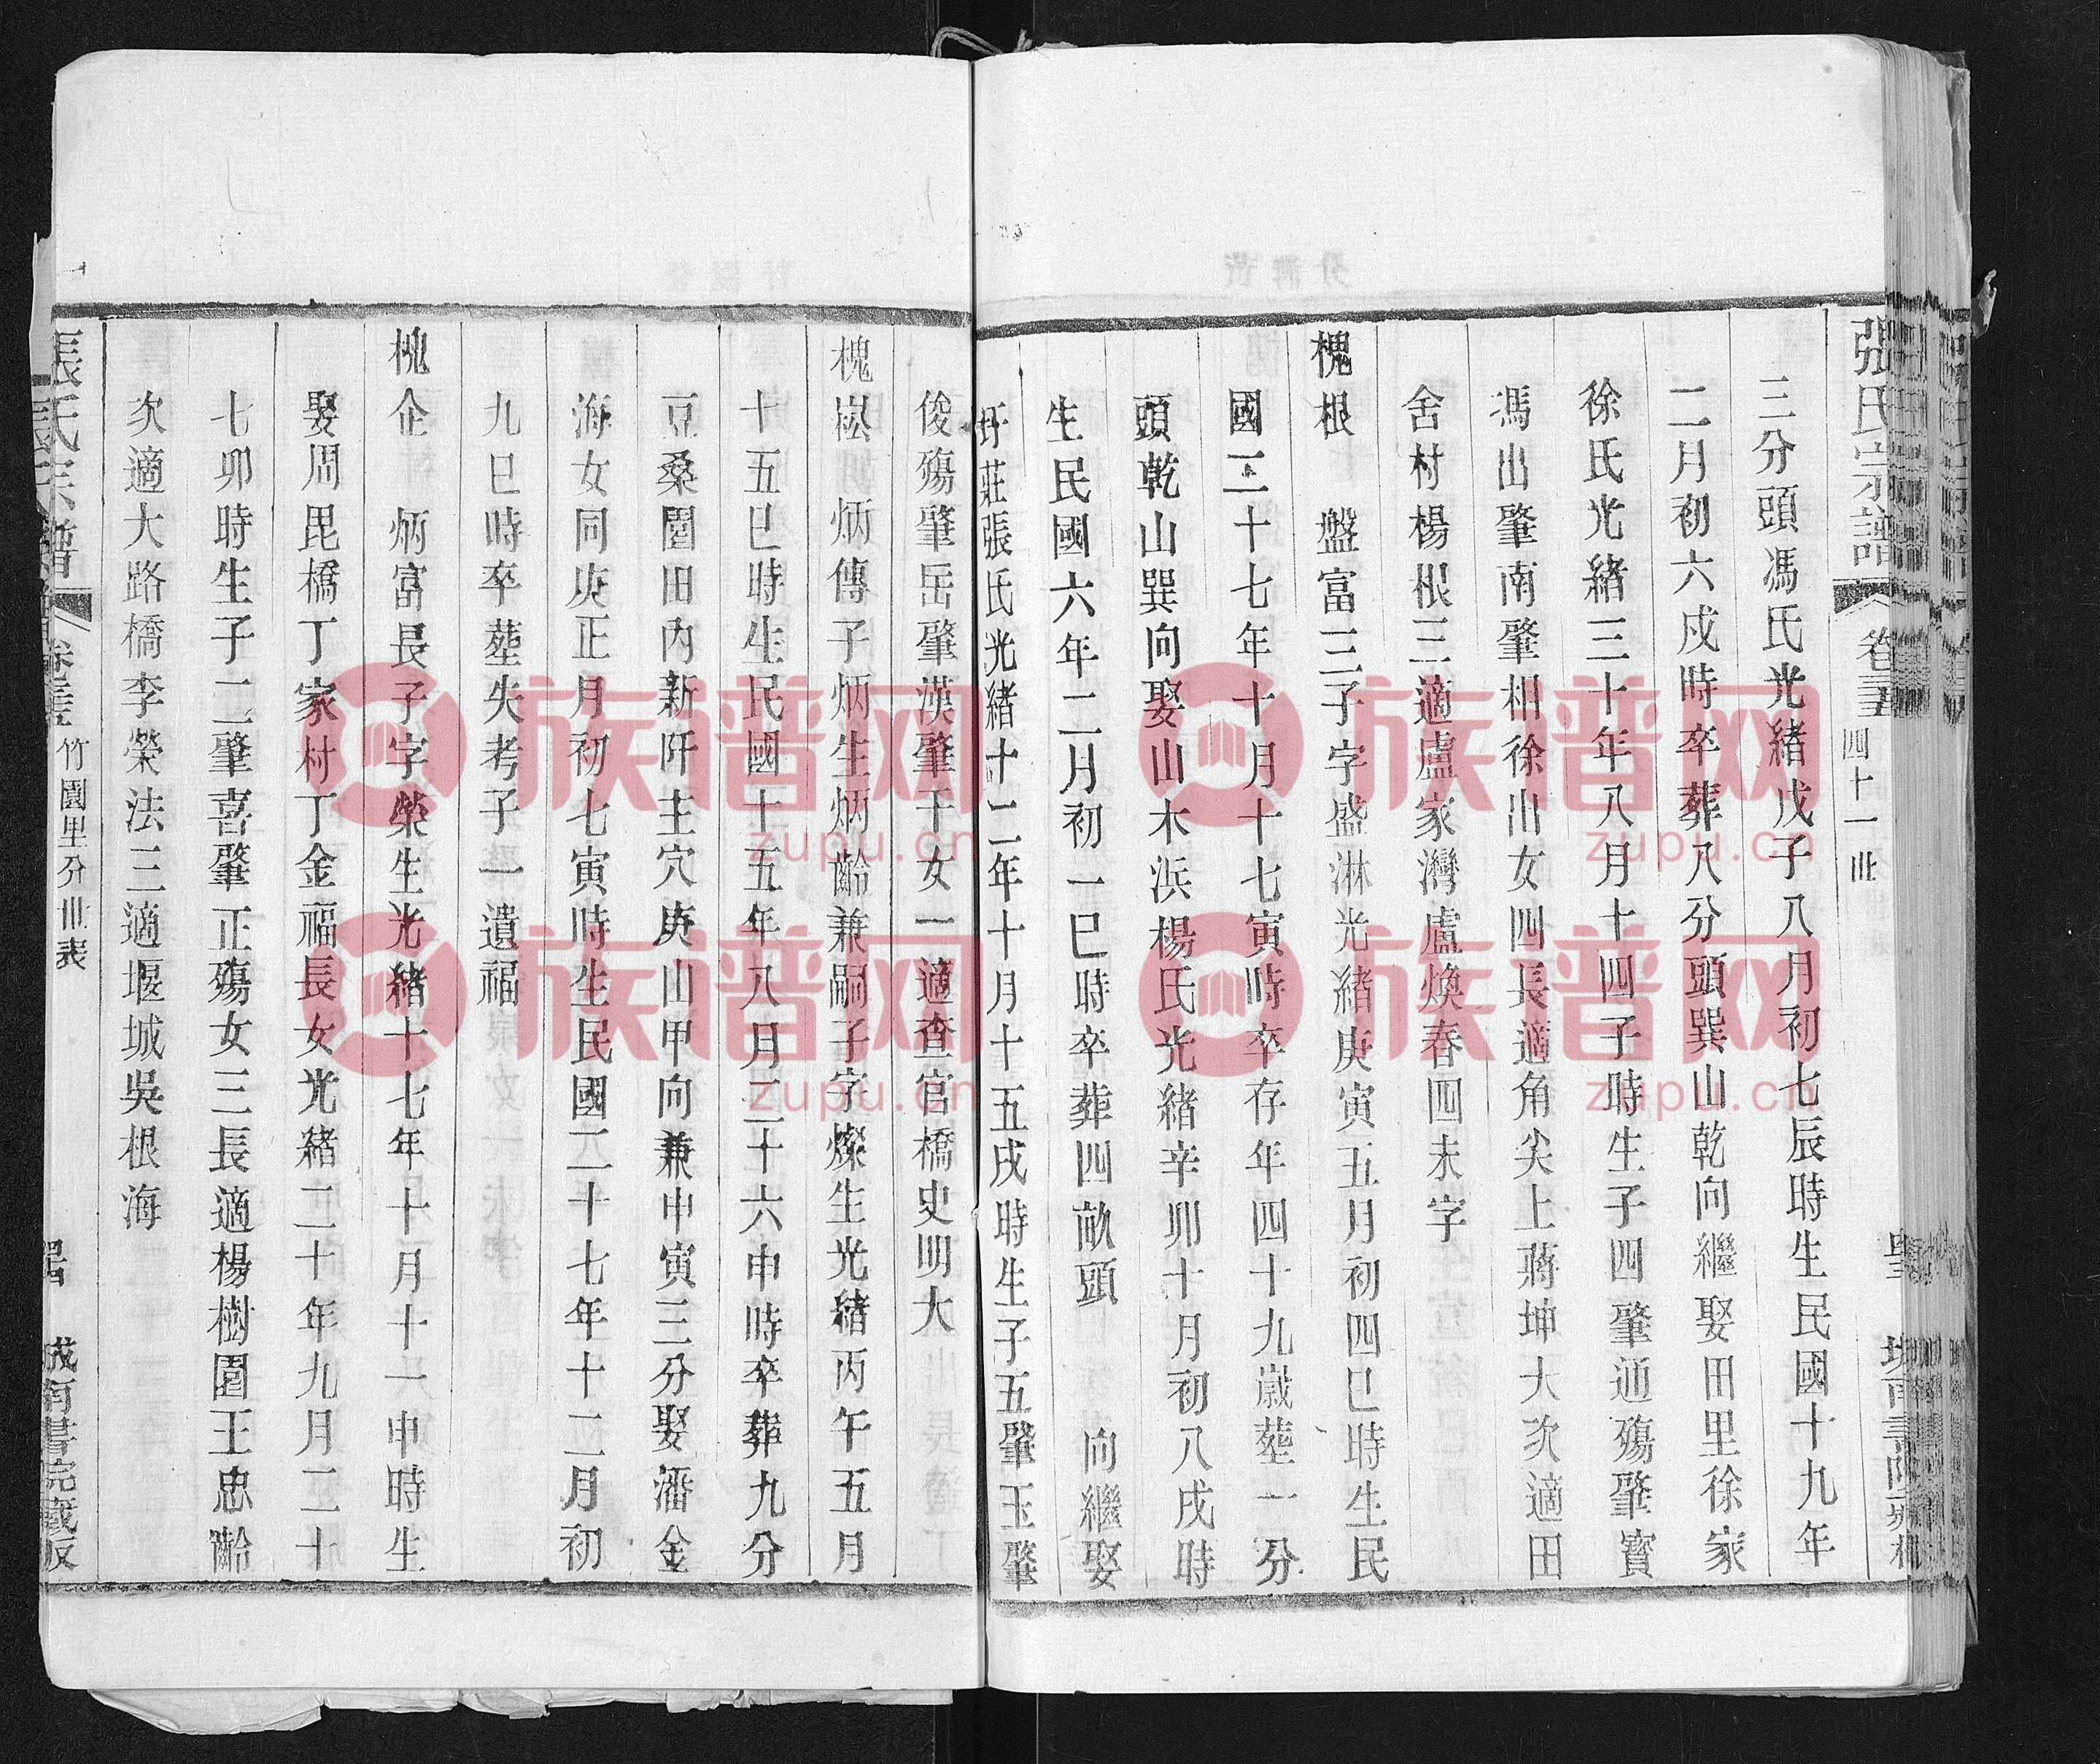 張氏宗譜 卷三 四十一世
三分頭馮氏光緒戊子八月初七辰時生民國十九年
二月初六戌時卒葬八分頭巽山乾向繼娶田里徐家
徐氏光緒三十年八月十四子時生子四肇通殤肇寶
馮出肇南肇相徐出女四長適角尖上蔣坤大次適田
舍村楊根三適盧家灣盧煥春四未字
槐根 盤富三子字盛淋光緒庚寅五月初四巳時生民
國二十七年十月十七寅時卒存年四十九歲塟一分
頭乾山巽向娶山木浜楊氏光緒辛卯十月初八戌時
生民國六年二月初一巳時卒葬四畝頭 向繼娶
圩莊張氏光緒十二年十月十五戌時生子五肇玉肇
俊殤肇岳肇漢肇千女一適查官橋史明大
槐崧 炳傳子炳生炳齡兼嗣子字燦生光緒丙午五月
十五巳時生民國十五年八月二十六申時卒葬九分
豆桑園旧內新阡主穴庚山甲向兼申寅三分娶潘金
海女同庚正月初七寅時生民國二十七年十二月初
九巳時卒塟失考子一遺福
槐企 炳富長子字榮生光緒十七年十月十一申時生
娶周毘橋丁家村丁金福長女光緒二十年九月二十
七卯時生子二肇喜肇正殤女三長適楊樹園王忠齡
次適大路橋李榮法三適堰城吳根海
張氏宗譜 竹園里分世表 城南書院藏板
族谱网
zupu.cn
族谱网
zupu.cn
族谱网
zupu.cn
族谱网
zupu.cn